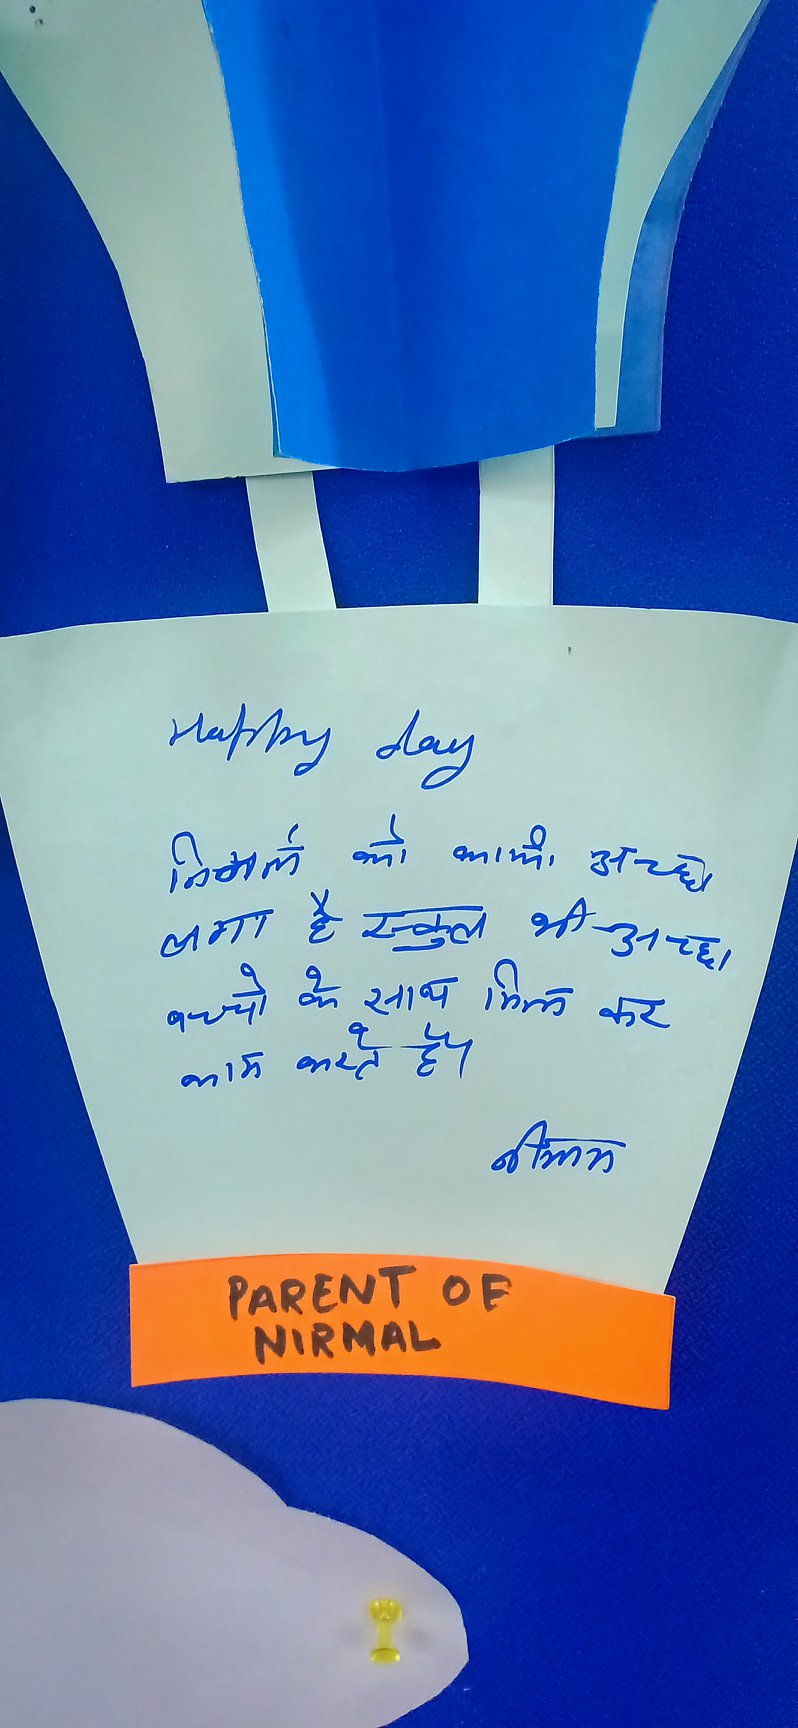 Happy day
निर्मल को काफी अच्छा
लगा है स्कुल भी अच्छा
बच्चो के साथ मिल कर
काम करते है।
PARENT OF
NIRMAL